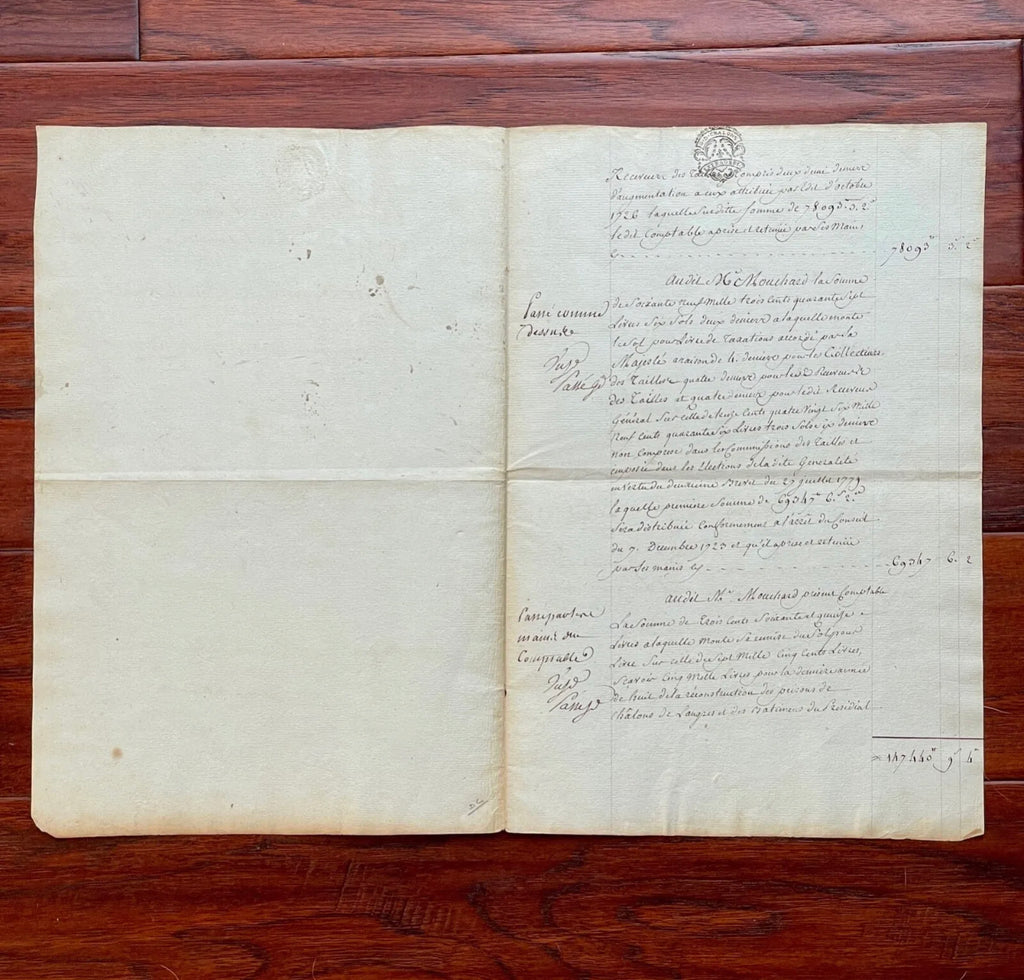 Receveurs des Tailles compris deux demi deniers
d'augmentation a eux attribuée par Edit d'octobre
1726 laquelle Susditte Somme de 78093.tt 3.s 2.d
ledit Comptable a prise et retenüe par Ses Mains
Cy 78093.tt 3.s 2.d
audit Mr. Mouchard la Somme
Passé comme
dessus
de Soixante neuf Mille trois Cents quarante Sept
Livres Six Sols deux deniers a laquelle monte
le Sol pour Livre de Taxations accordé par Sa
Majesté a raison de 4. deniers pour les Collecteurs
des Tailles quatre deniers pour les Receveurs
des Tailles et quatre deniers pour ledit Receveur
Général Sur celle de Cents quatre Vingt Six Mille
neuf Cents quarante Six Livres trois Sols Six deniers
non Comprise dans les Commissions des Tailles et
imposée dans les Elections de la dite Generalité
en Vertu du deuxieme Brevet du 27 Juillet 1779
laquelle premiere Somme de 69347.tt 6.s 2.d
Sera distribuée Conformement a l'arrêt du Conseil
du 7. Decembre 1723 et qu'il a prise et retenüe
par Ses mains Cy 69347 6. 2
audit Mr. Mouchard présent Comptable
Passé par les
mains du
Comptable
La Somme de Trois Cents Soixante et quinze
Livres a laquelle Monte Sa remise du Sol pour
Livre Sur celle de Sept Mille Cinq Cents Livres,
Sçavoir Cinq Mille Livres pour la derniere année
de huit de la réconstruction des prisons de
Châlons de Langres et des Batimens du Presidial
147440.tt 9.s 4.d